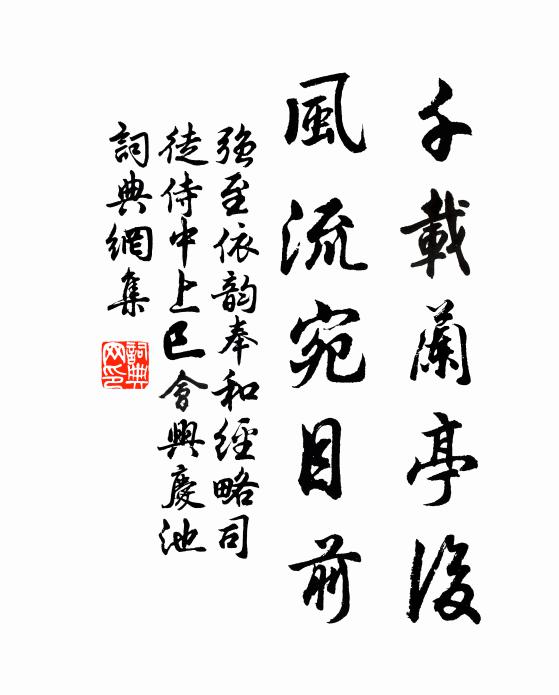 千載蘭亭後
風流宛目前
强至依韵奉和經略司
徒侍中上巳會興慶池
詞典網集
詞典網印